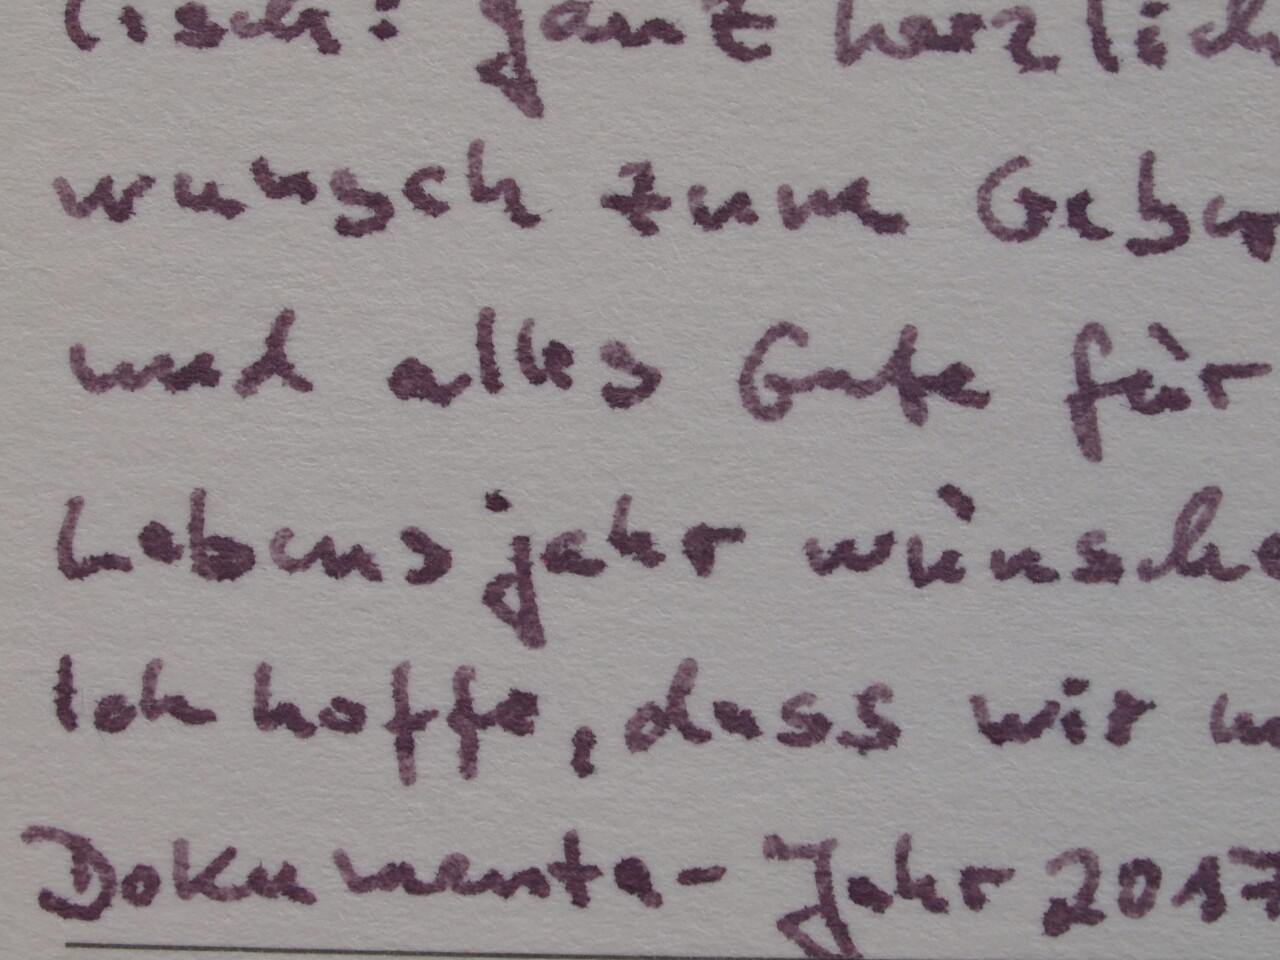 tisch! ganz herzlich
wunsch zum Gebu
und alles Gute für
Lebensjahr wünsche
Ich hoffe, dass wir u
Dokumenta-Jahr 2017